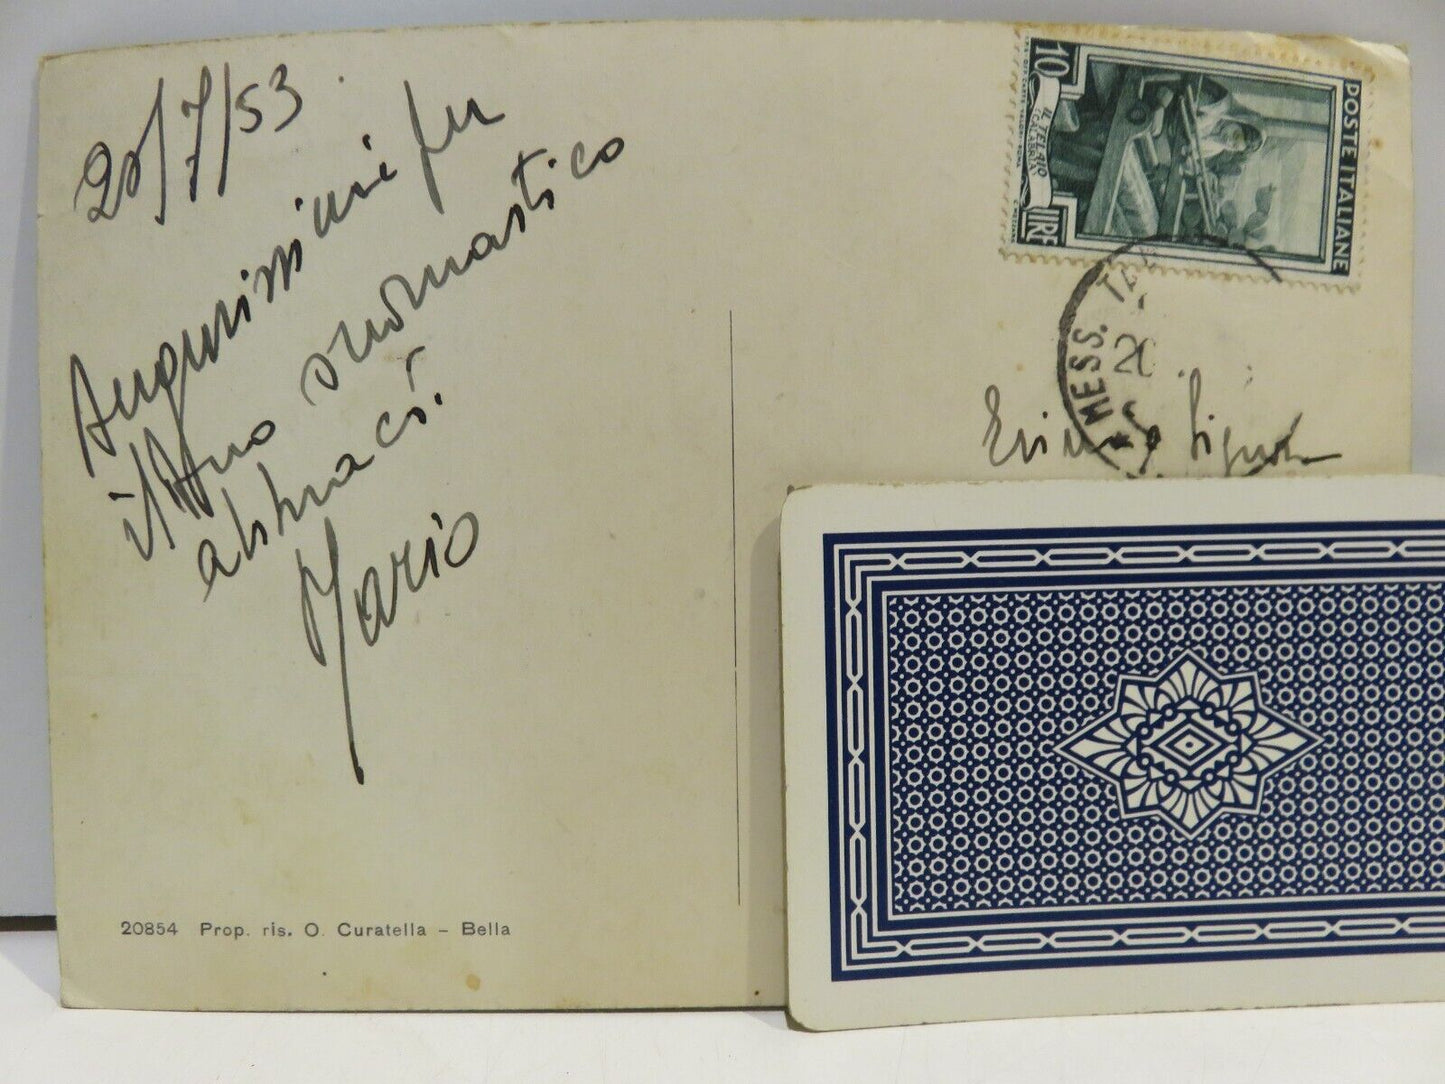 20/7/53
Augurissimi per
il tuo onomastico
abbracci.
Mario
20854 Prop. ris. O. Curatella – Bella
10
IL TELAIO
(CALABRIA)
LIRE
POSTE ITALIANE
MESS. TA
20